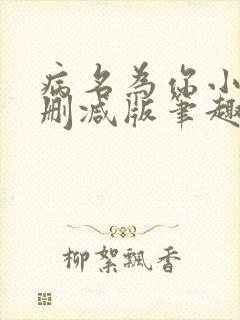 病名为你小
删减版笔趣
柳絮飄香